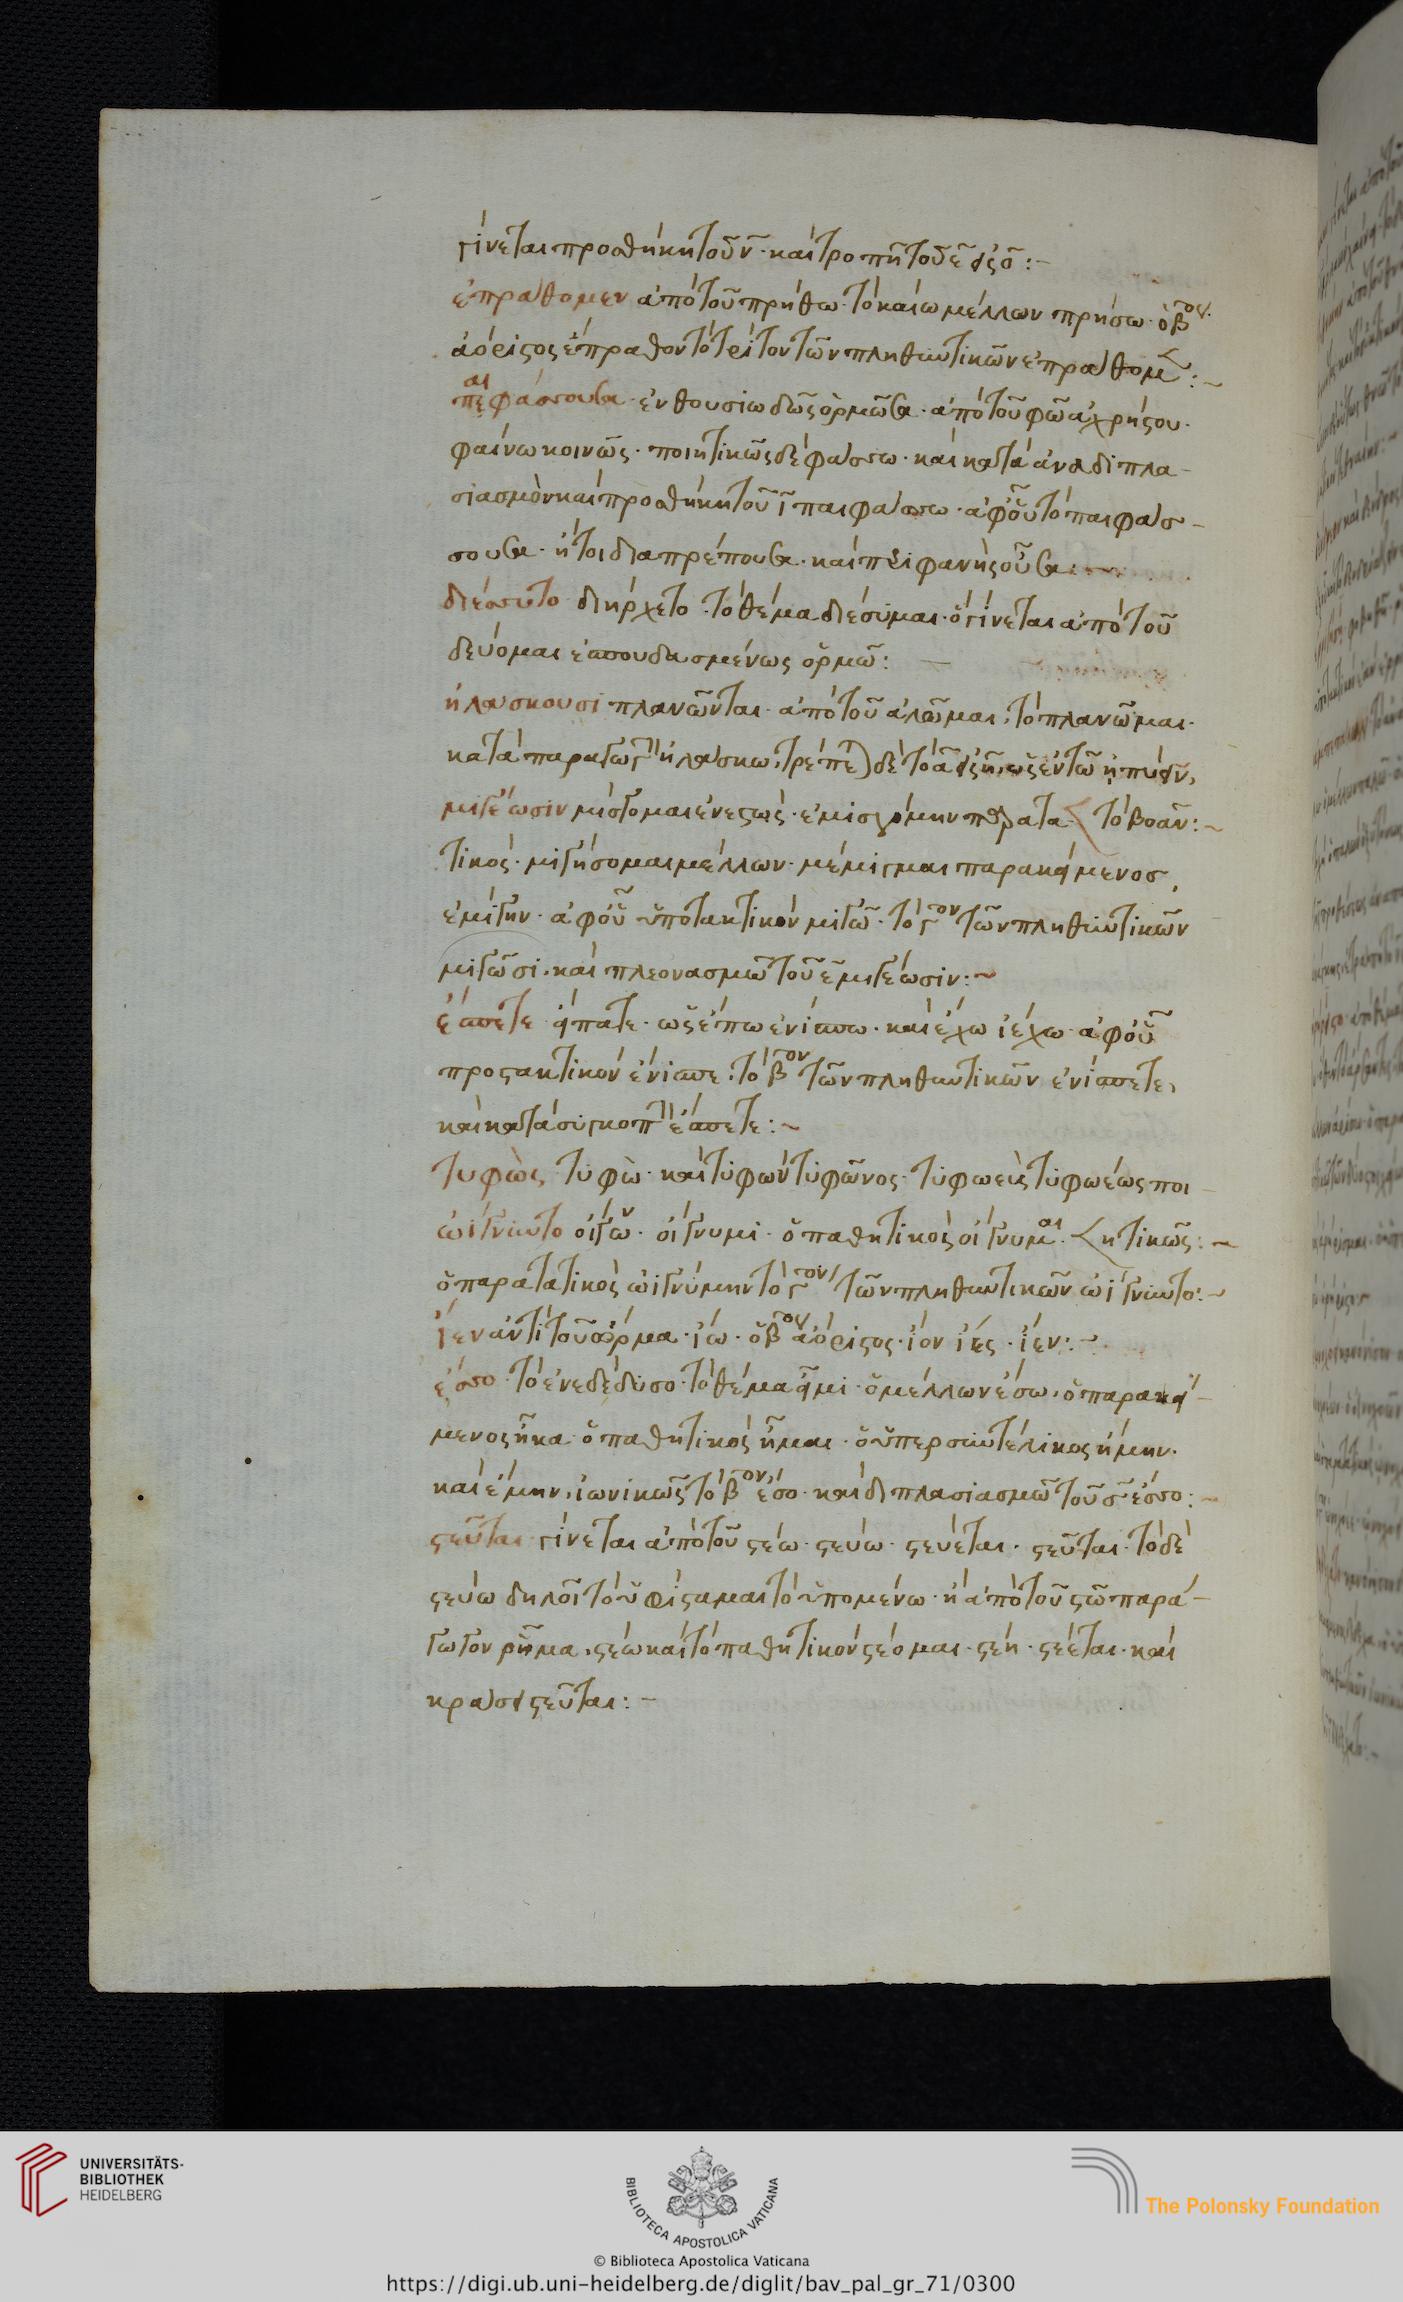 γίνεται προσθήκη τοῦ ν̄· καὶ τροπῇ τοῦ ε̄ εἰς ο̄:-
ἐπράθομεν ἀπὸ τοῦ πρήθω τὸ καίω μέλλων πρήσω· ὁ β̄ος·
ἀόριστος ἔπραθον τὸ τρίτον τῶν πληθυντικῶν ἐπράθομεν:~
παιφάσσουσα· ἐνθουσιωδῶς ὁρμῶσα· ἀπὸ τοῦ φῶ ἀχρήστου·
φαίνω κοινῶς· ποιητικῶς δὲ φάσσω· καὶ κατὰ ἀναδιπλα-
σιασμὸν καὶ προσθήκη τοῦ ῑ παιφάσσω· ἀφ' οὗ τὸ παιφάσ-
σουσα· ἤτοι διαπρέπουσα· καὶ περιφανὴς οὖσα:~
διέσσυτο διήρχετο· τὸ θέμα διέσυμαι· ὃ γίνεται ἀπὸ τοῦ
δεύομαι ἐσπουδασμένως ὁρμῶ:
ἠλάσκουσι πλανῶνται· ἀπὸ τοῦ ἀλῶμαι, τὸ πλανῶμαι·
κατὰ παραγωγὴν ἠλάσκω· τρέπεται δὲ τὸ ᾱ εἰς η̄, ὡς ἐν τῷ ἠπύειν,
μιγέωσιν μίσγομαι ἐνεστώς· ἐμισγόμην παρατα< τὸ βοᾶν:~
τικός· μιγήσομαι μέλλων· μέμιγμαι παρακείμενος,
ἐμίγην· ἀφ' οὗ ὑποτακτικὸν μιγῶ· τὸ γ̄ον τῶν πληθυντικῶν
μιγῶσι· καὶ πλεονασμῷ τοῦ ε̄ μιγέωσιν:~
ἔσπετε εἴπατε· ὡς ἔπω ἐνίσπω· καὶ ἔχω ἰέχω· ἀφ' οὗ
προστακτικὸν ἔνισπε· τὸ β̄ον τῶν πληθυντικῶν ἐνίσπετε,
καὶ κατὰ συγκοπὴν ἔσπετε:~
τυφὼς τυφὼ· καὶ τυφὼν τυφῶνος· τυφωεὺς τυφωέως ποι-
ὠίγνυντο οἰγῶ· οἴγνυμι· ὁ παθητικὸς οἴγνυμαι· <ητικῶς:~
ὁ παρατατικὸς ὠιγνύμην τὸ γ̄ον τῶν πληθυντικῶν ὠίγνυντο:~
ἵεν ἀντὶ τοῦ ὅρμα· ἵω· ὁ β̄ος ἀόριστος· ἷον ἷες· ἷεν:~
ἕσσο· τὸ ἐνεδέδυσο· τὸ θέμα εἷμι· ὁ μέλλων ἕσω· ὁ παρακεί-
μενος εἷκα ὁ παθητικὸς εἷμαι· ὁ ὑπερσυντέλικος εἵμην·
καὶ ἕμην, ἰωνικῶς τὸ β̄ον, ἕσο· καὶ διπλασιασμῷ τοῦ σ̄ ἕσσο:~
στεῦται γίνεται ἀπὸ τοῦ στέω· στεύω· στεύεται· στεῦται· τὸ δὲ
στεύω δηλοῖ τὸ ὑφίσταμαι τὸ ὑπομένω· ἢ ἀπὸ τοῦ στῶ παρά-
γωγον ῥῆμα, στέω καὶ τὸ παθητικὸν στέομαι· στέη· στέεται· καὶ
κράσει στεῦται:-
UNIVERSITÄTS-
BIBLIOTHEK
HEIDELBERG
BIBLIOTECA APOSTOLICA VATICANA
The Polonsky Foundation
© Biblioteca Apostolica Vaticana
https://digi.ub.uni-heidelberg.de/diglit/bav_pal_gr_71/0300